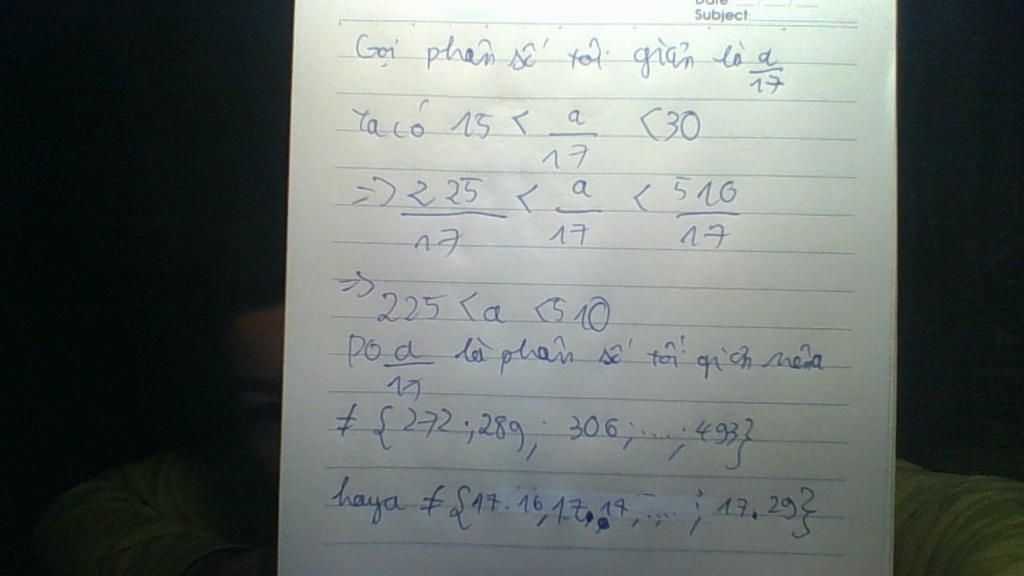 Date
Subject
Gọi phân số tối giản là a/17
Ta có 15 < a/17 < 30
=> 225/17 < a/17 < 510/17
=> 225 < a < 510
Do a/17 là phân số tối giản nên a
≠ {272; 289; 306; ....; 493}
hay a ≠ {17.16, 17.17, ....; 17.29}